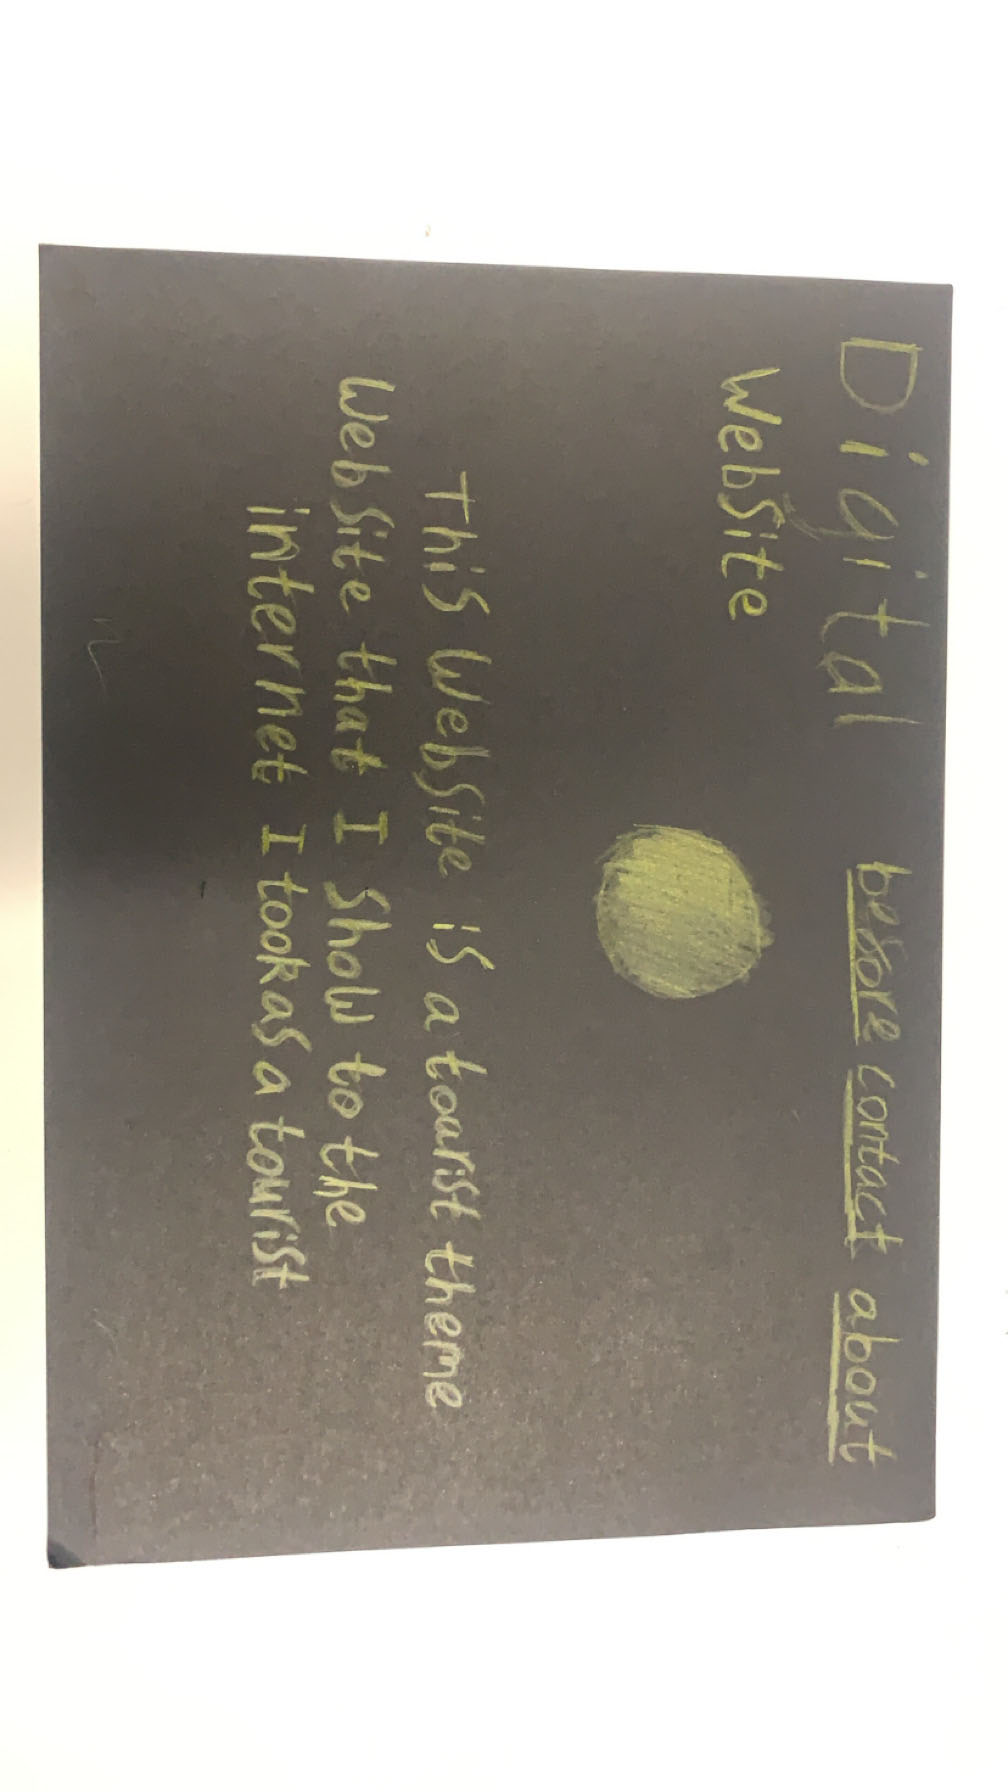 Digital besore contact about
Website
This Website is a tourist theme
Website that I show to the
internet I took as a tourist